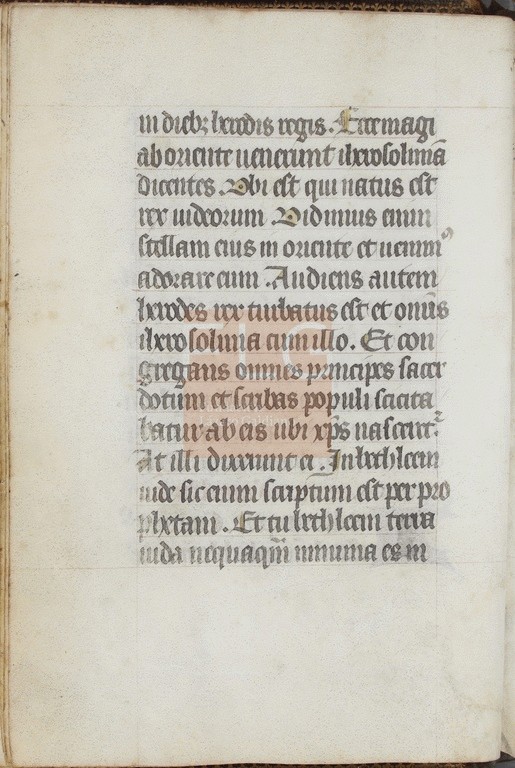 in dieb⁊ herodis regis. Ecce magi
ab oriente uenerunt ihr̄osolimā
dicentes. Vbi est qui natus est
rex iudeorum Vidimus enim
stellam eius in oriente et uenimꝰ
adorare eum. Audiens autem
herodes rex turbatus est et om̄is
iherosolima cum illo. Et con
gregans omnes principes sacer
dotum et scribas populi sciscita
batur ab eis ubi xp̄s nasceret᷑.
At illi dixerunt ei. In bethleem
iude sic enim scriptum est per pro
phetam. Et tu bethleem terra
iuda nequaqm̄ minima es in